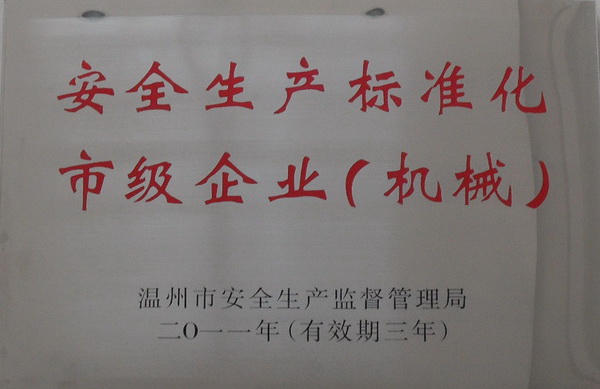 安全生产标准化
市级企业(机械)
温州市安全生产监督管理局
二O一一年(有效期三年)